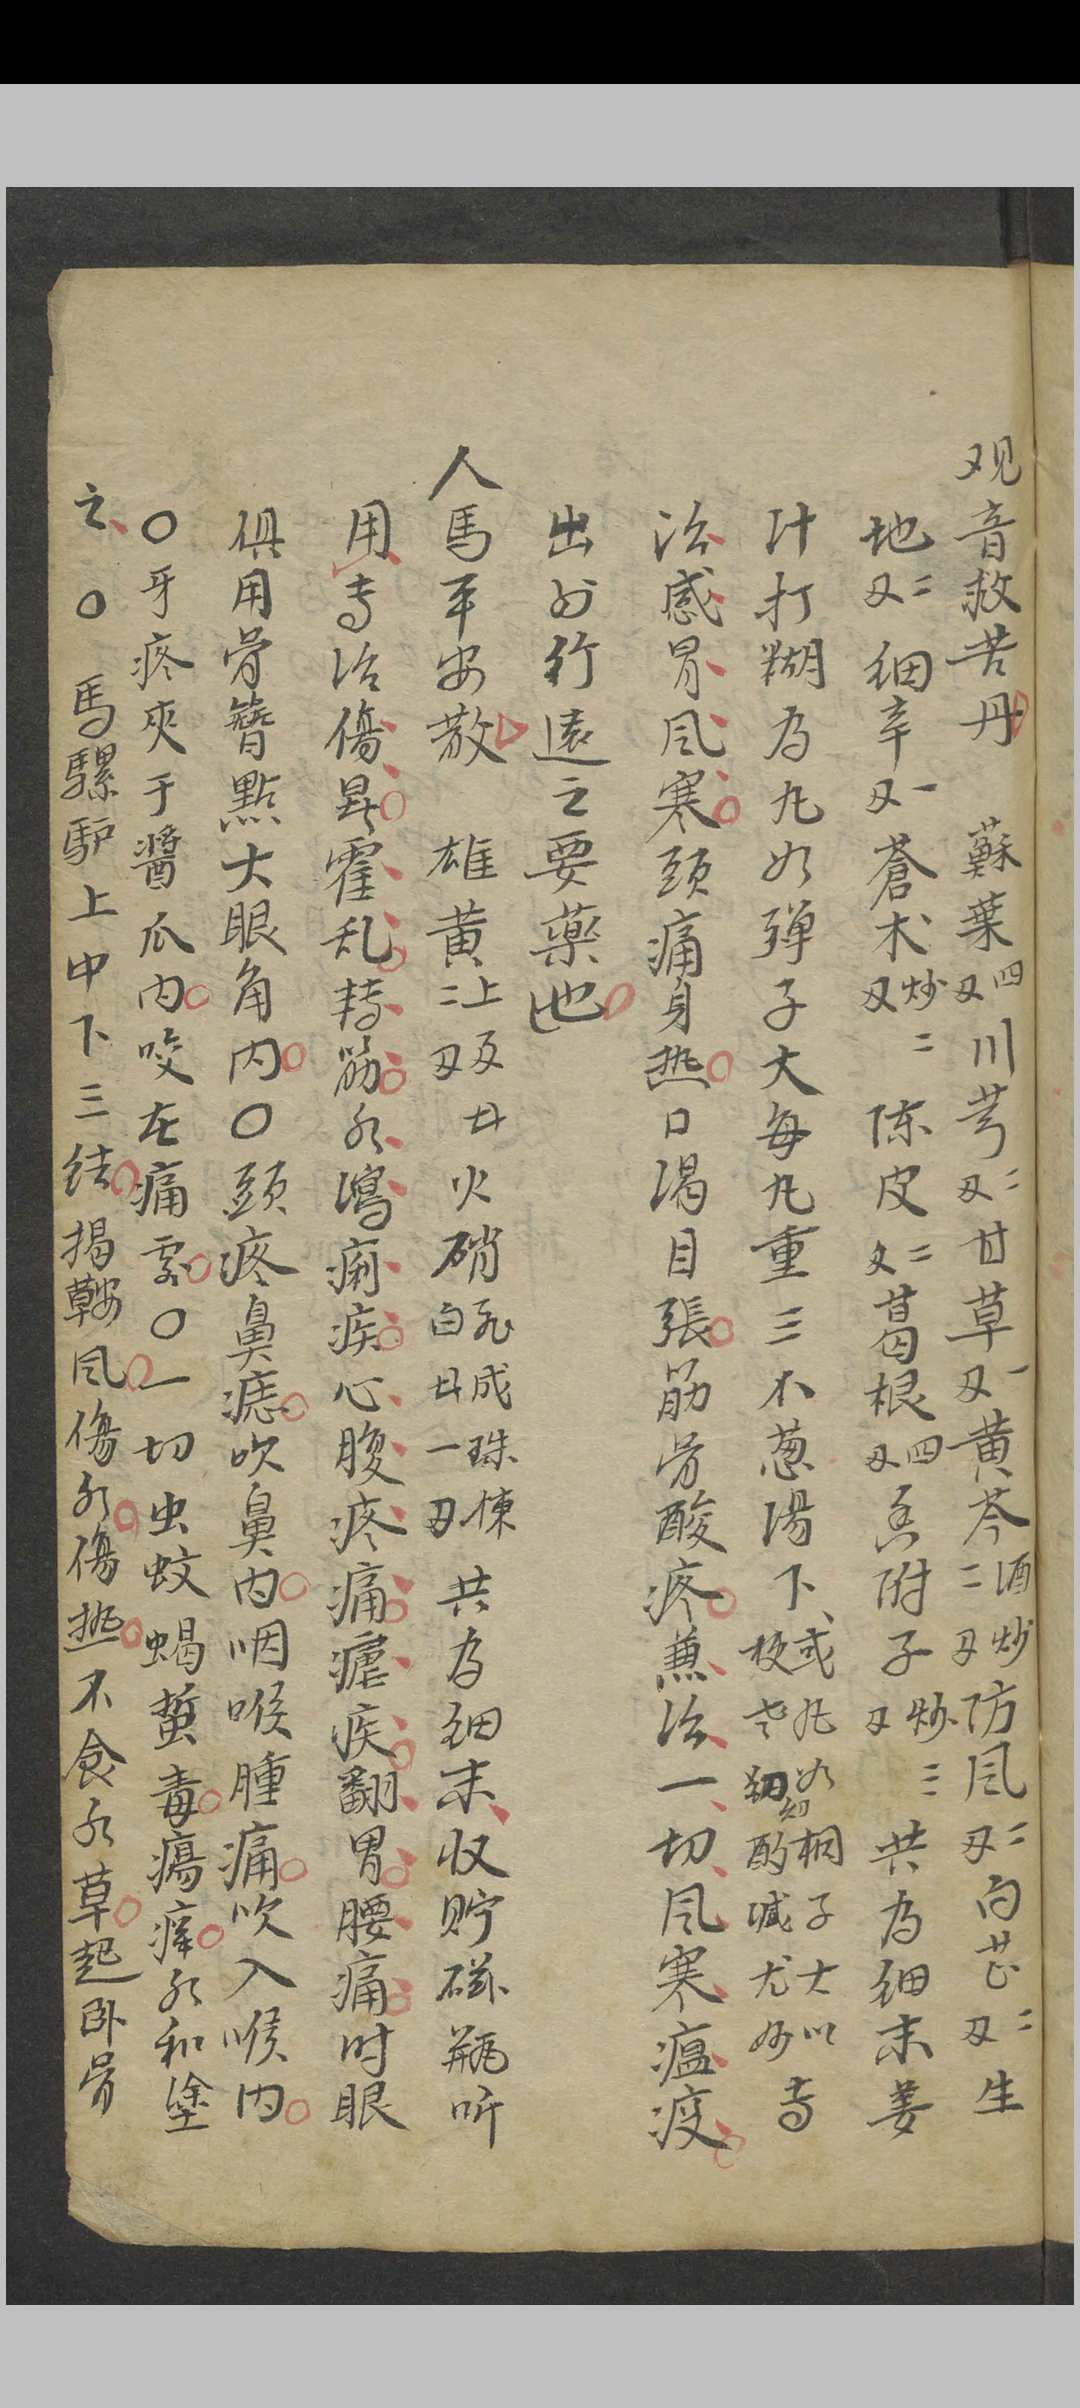 观音救苦丹 蘇葉四刄川芎二刄甘草一刄黄芩酒炒二刄防風二刄白芷二刄生
地二刄細辛一刄蒼术炒二刄陳皮二刄葛根四刄香附子炒三刄共為細末姜
汁打糊為丸如弹子大每丸重三不葱湯下或丸如桐子大以梗老幼斟酌减尤妙专
治感冒風寒頭痛身热口渴目張筋骨酸疼兼治一切風寒瘟疫
出外行遠之要藥也
人馬平安散 雄黄上二刄 火硝 共為細末收贮磁瓶听
用专治傷暑霍乱轉筋水瀉痢疾心腹疼痛瘧疾翻胃腰痛时眼
俱用骨簪點大眼角内〇頭疼鼻痣吹鼻内咽喉腫痛吹入喉内
〇牙疼夾于醬瓜内咬在痛處〇一切虫蚊蝎蜇毒瘍痒水和塗
之〇馬騾驴上中下三结揭鞍風傷水傷热不食水草起卧骨